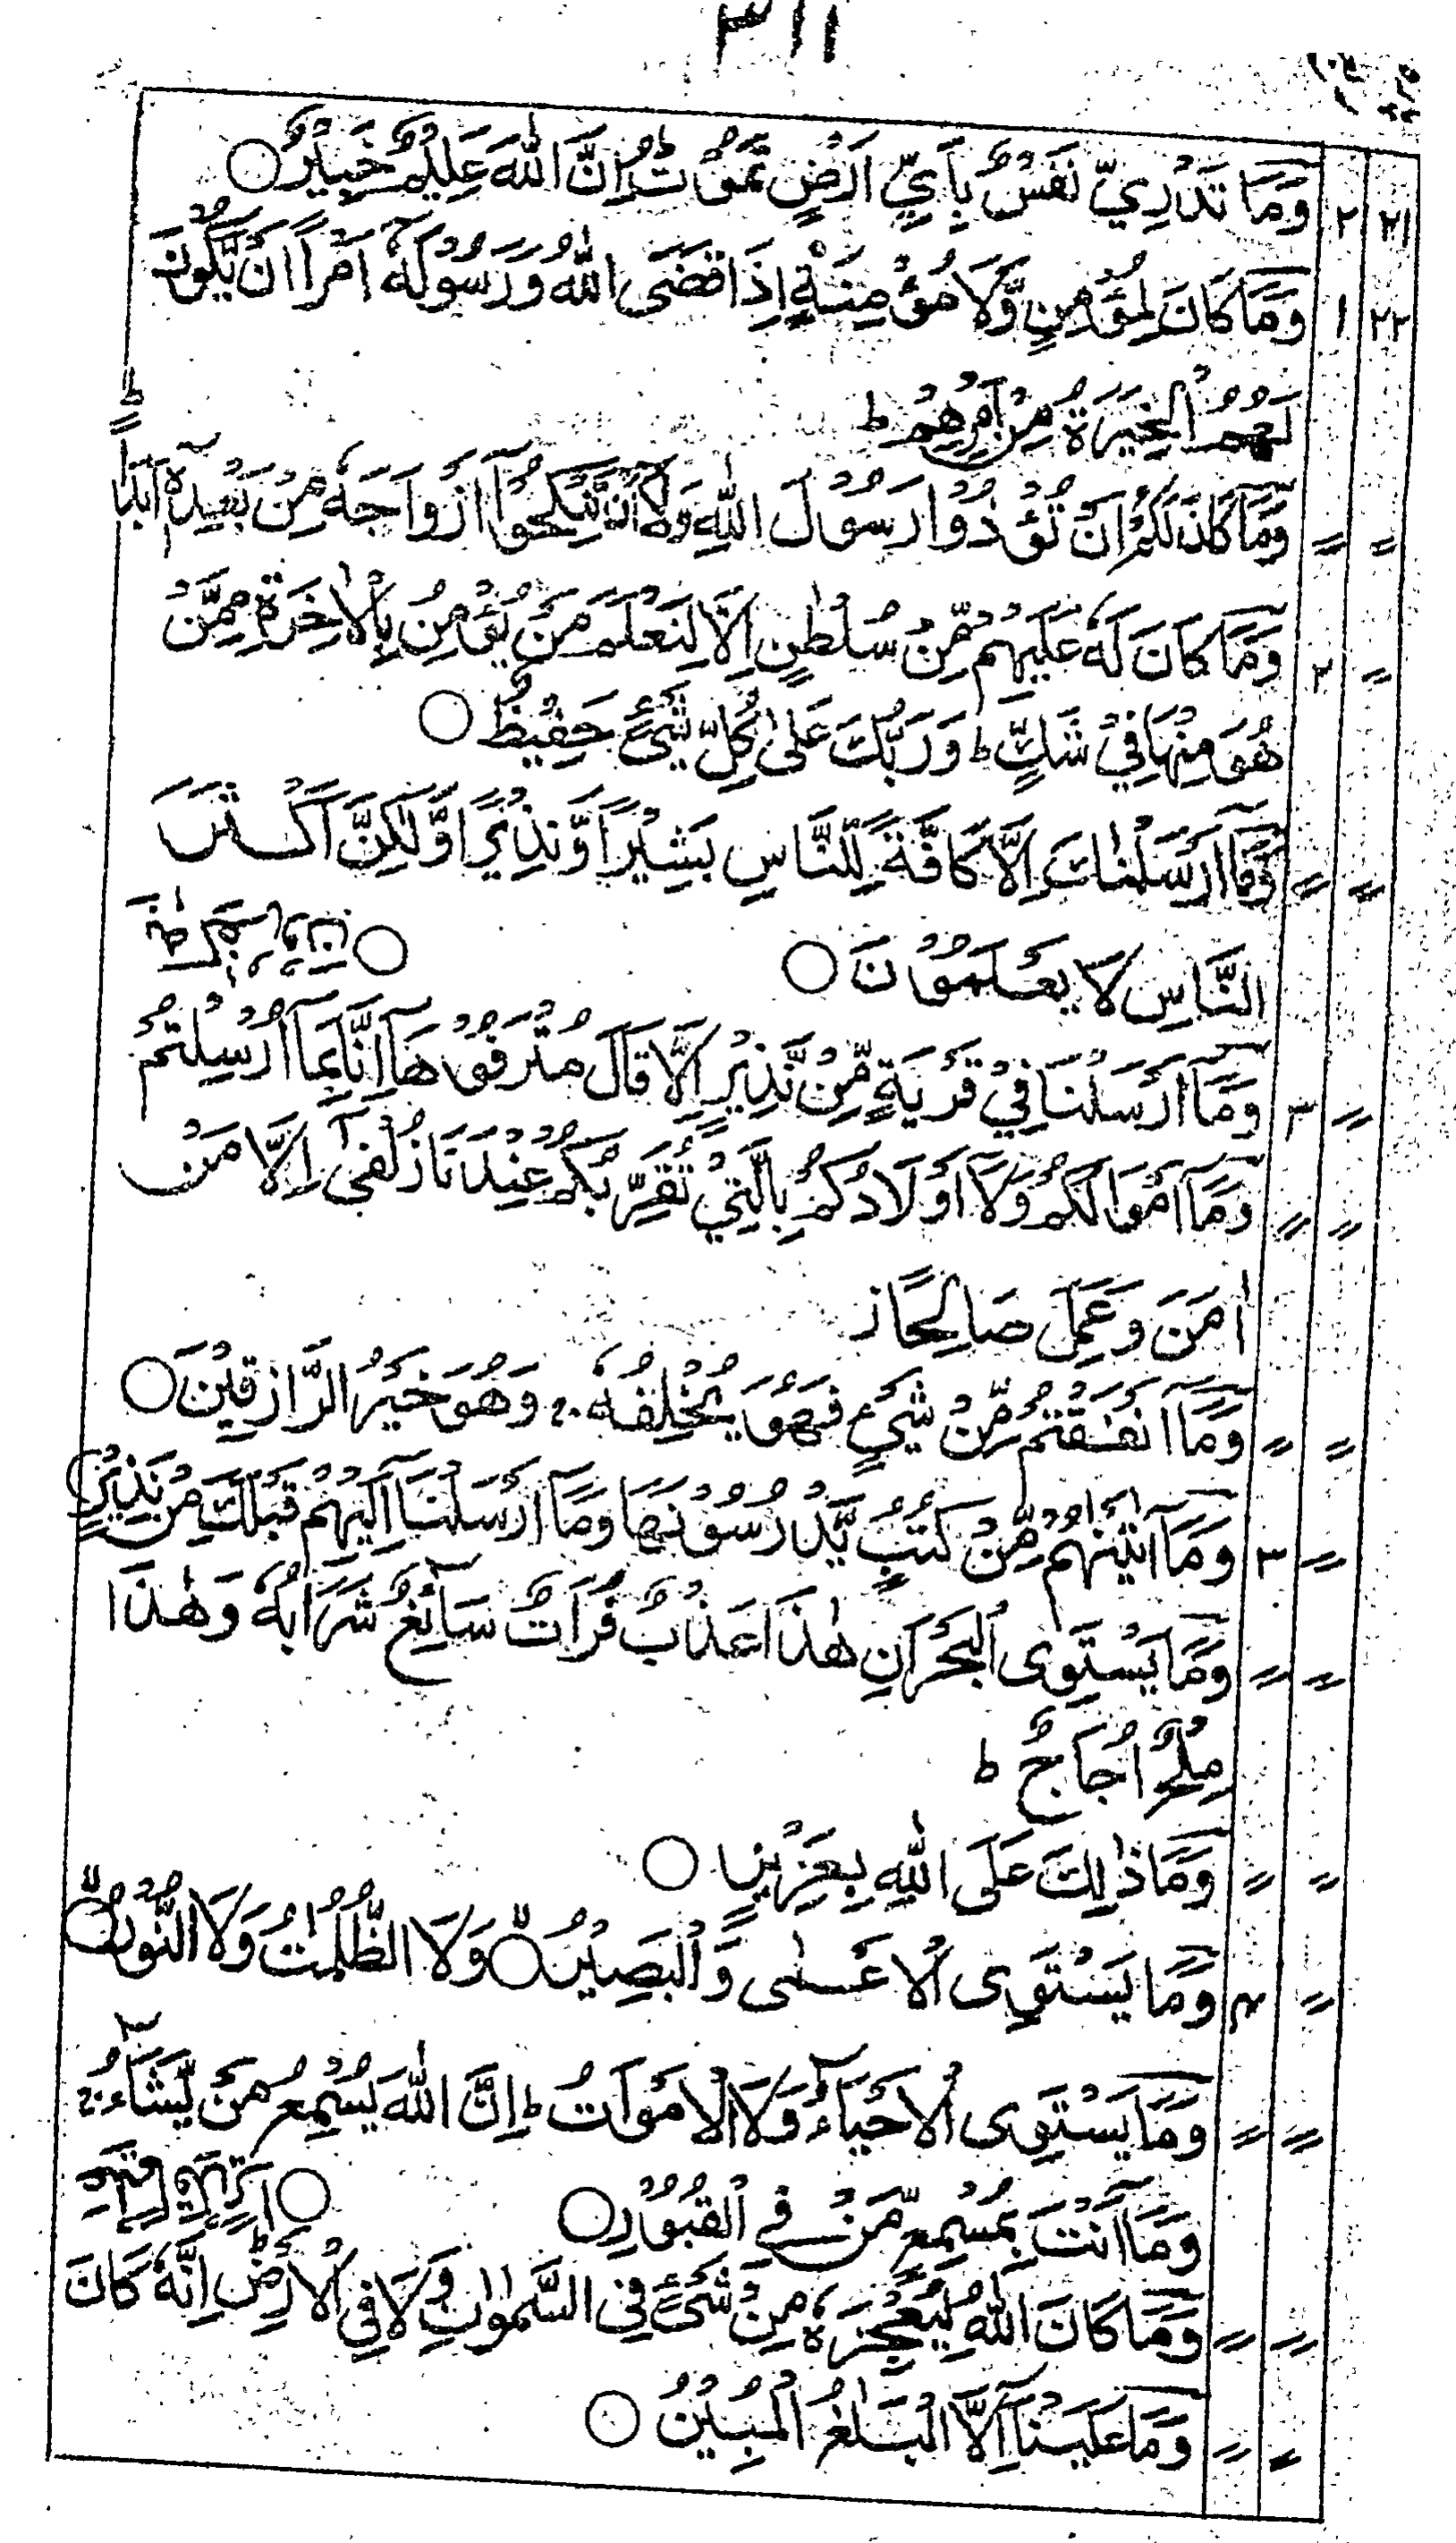 ٣١١
٢١ ٢ وَمَا تَدْرِيْ نَفْسٌۢ بِاَيِّ اَرْضٍ تَمُوْتُ ط اِنَّ اللّٰهَ عَلِيْمٌ خَبِيْرٌ ○
٢٢ ١ وَمَا كَانَ لِمُؤْمِنٍ وَّلَا مُؤْمِنَةٍ اِذَا قَضَى اللّٰهُ وَرَسُوْلُهٗٓ اَمْرًا اَنْ يَّكُوْنَ
لَهُمُ الْخِيَرَةُ مِنْ اَمْرِهِمْ ط
〃 〃 وَمَا كَانَ لَكُمْ اَنْ تُؤْذُوْا رَسُوْلَ اللّٰهِ وَلَآ اَنْ تَنْكِحُوْٓا اَزْوَاجَهٗ مِنْۢ بَعْدِهٖٓ اَبَدًا ط
〃 ٢ وَمَا كَانَ لَهٗ عَلَيْهِمْ مِّنْ سُلْطٰنٍ اِلَّا لِنَعْلَمَ مَنْ يُّؤْمِنُ بِالْاٰخِرَةِ مِمَّنْ
هُوَ مِنْهَا فِيْ شَكٍّ ط وَرَبُّكَ عَلٰى كُلِّ شَيْءٍ حَفِيْظٌ ○
〃 〃 وَمَآ اَرْسَلْنٰكَ اِلَّا كَآفَّةً لِّلنَّاسِ بَشِيْرًا وَّنَذِيْرًا وَّلٰكِنَّ اَكْثَرَ
النَّاسِ لَا يَعْلَمُوْنَ ○
〃 ٣ وَمَآ اَرْسَلْنَا فِيْ قَرْيَةٍ مِّنْ نَّذِيْرٍ اِلَّا قَالَ مُتْرَفُوْهَآ اِنَّا بِمَآ اُرْسِلْتُمْ
بِهٖ كٰفِرُوْنَ ○
〃 〃 وَمَآ اَمْوَالُكُمْ وَلَآ اَوْلَادُكُمْ بِالَّتِيْ تُقَرِّبُكُمْ عِنْدَنَا زُلْفٰٓى اِلَّا مَنْ
اٰمَنَ وَعَمِلَ صَالِحًا ز
〃 〃 وَمَآ اَنْفَقْتُمْ مِّنْ شَيْءٍ فَهُوَ يُخْلِفُهٗ ج وَهُوَ خَيْرُ الرَّازِقِيْنَ ○
〃 ٣ وَمَآ اٰتَيْنٰهُمْ مِّنْ كُتُبٍ يَّدْرُسُوْنَهَا وَمَآ اَرْسَلْنَآ اِلَيْهِمْ قَبْلَكَ مِنْ نَذِيْرٍ
〃 〃 وَمَا يَسْتَوِى الْبَحْرَانِ هٰذَا عَذْبٌ فُرَاتٌ سَآئِغٌ شَرَابُهٗ وَهٰذَا
مِلْحٌ اُجَاجٌ ط
〃 〃 وَمَا ذٰلِكَ عَلَى اللّٰهِ بِعَزِيْزٍ ○
〃 ٤ وَمَا يَسْتَوِى الْاَعْمٰى وَالْبَصِيْرُ ○ وَلَا الظُّلُمٰتُ وَلَا النُّوْرُ ○
〃 〃 وَمَا يَسْتَوِى الْاَحْيَآءُ وَلَا الْاَمْوَاتُ ط اِنَّ اللّٰهَ يُسْمِعُ مَنْ يَّشَآءُ ج
وَمَآ اَنْتَ بِمُسْمِعٍ مَّنْ فِي الْقُبُوْرِ ○
〃 〃 وَمَا كَانَ اللّٰهُ لِيُعْجِزَهٗ مِنْ شَيْءٍ فِى السَّمٰوٰتِ وَلَا فِى الْاَرْضِ ط اِنَّهٗ كَانَ
〃 〃 وَمَا عَلَيْنَآ اِلَّا الْبَلٰغُ الْمُبِيْنُ ○